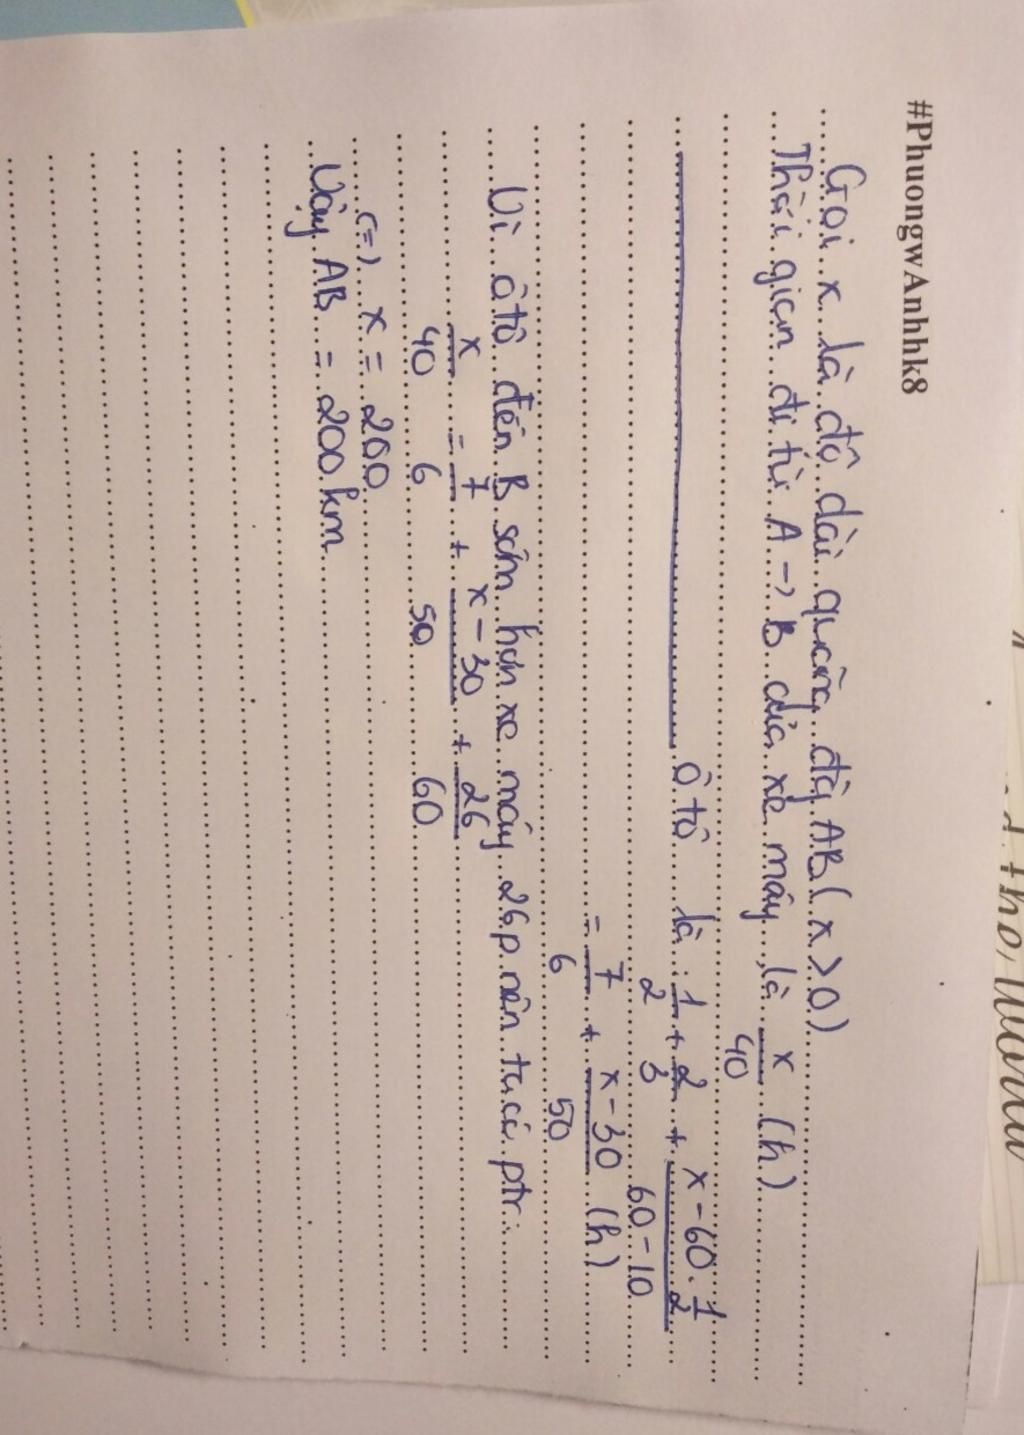 #PhuongwAnhhk8
Gọi x là độ dài quãng đg AB (x > 0)
Thời gian đi từ A -> B của xe máy là x/40 (h)
ô tô là 1/2 + 2/3 + (x - 60 . 1/2)/(60 - 10)
= 7/6 + (x - 30)/50 (h)
Vì ôtô đến B sớm hơn xe máy 26p nên ta có ptr:
x/40 = 7/6 + (x - 30)/50 + 26/60
<=> x = 200
Vậy AB = 200 km